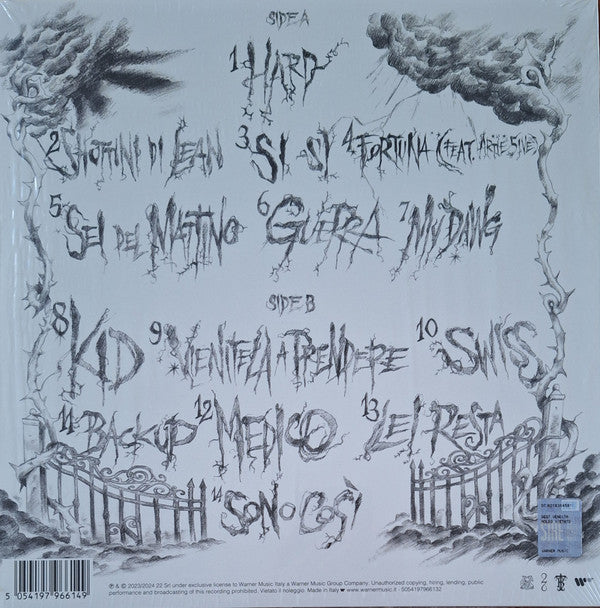 SIDE A
1 HARD
2 SHOTTINI DI LEAN 3 SI, SY 4 FORTUNA (FEAT. ARTIE 5IVE)
5 SEI DEL MATTINO 6 GUERRA 7 MY DAWG
SIDE B
8 KID 9 VIENITELA A PRENDERE 10 SWISS
11 BACKUP 12 MEDICO 13 LEI RESTA
14 SONO COSÌ
WARNER MUSIC
℗ & © 2023/2024 22 Srl under exclusive license to Warner Music Italy a Warner Music Group Company. Unauthorized copying, hiring, lending, public
performance and broadcasting of this recording prohibited. Vietato il noleggio. Made in Italy ♥ www.warnermusic.it · 5054197966132
5 054197 966149